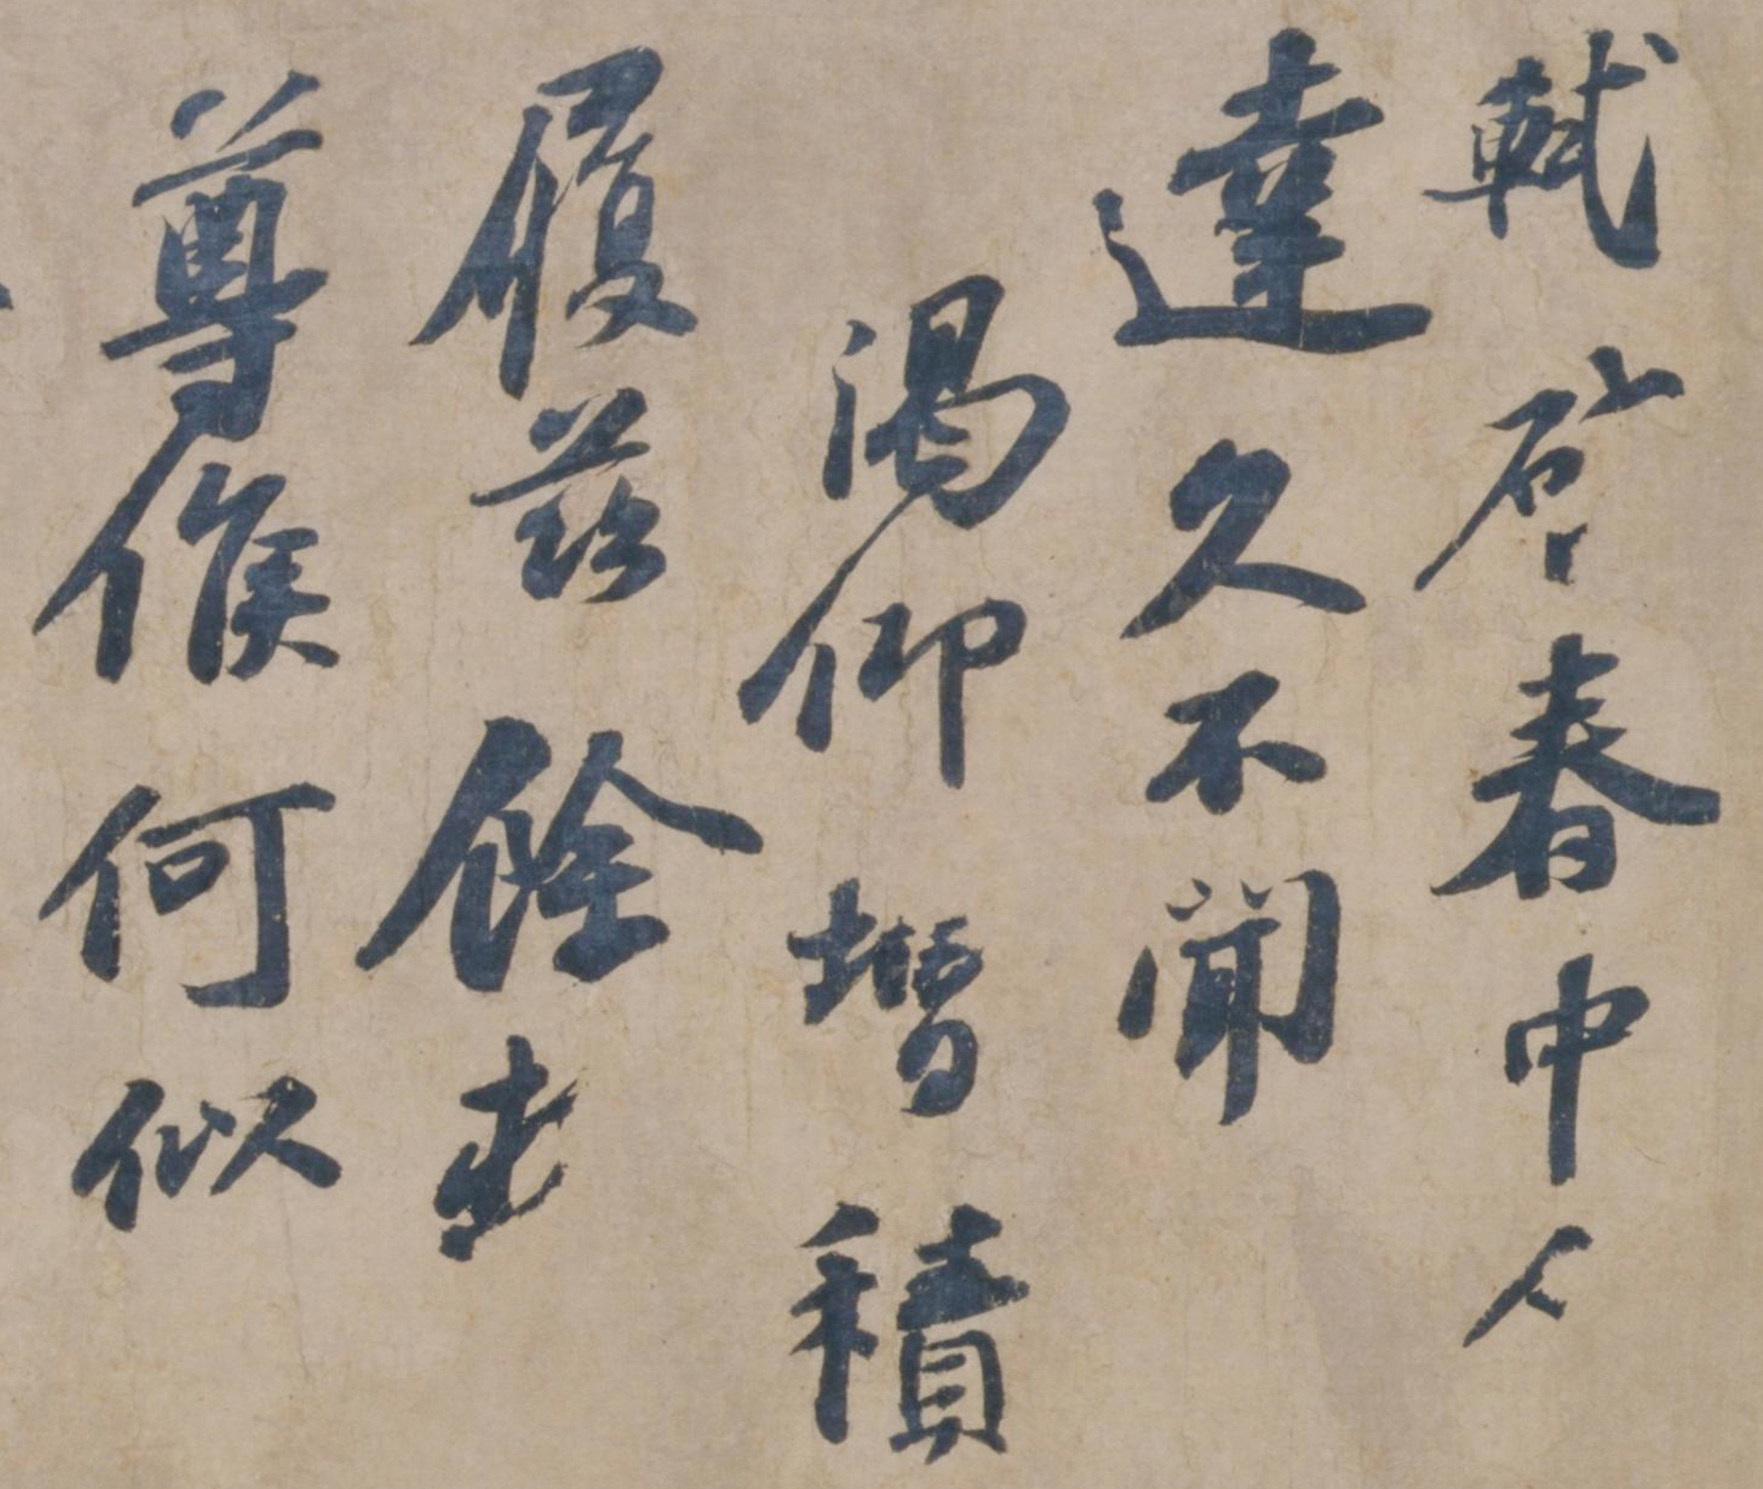 軾啓春中人
達久不聞
渴仰增積
履茲餘
尊候何似